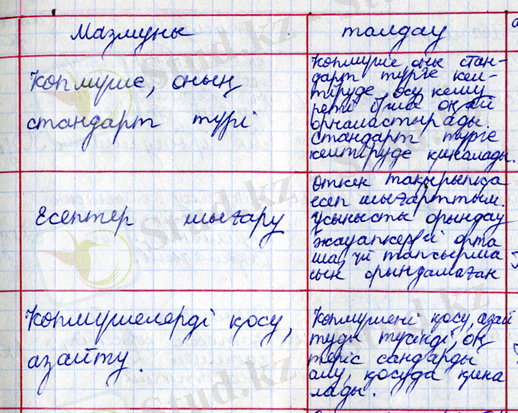 Мазмұны
талдау
Көпмүше, оның
стандарт түрі
Көпмүше оны стан-
дарт түрге кел-
тіруде, өсу кему
реті б/ша оңай
орналастырады.
стандарт түрге
келтіруде қиналады.
Есептер шығару
Өткен тақырыпқа
есеп шығарттым.
Ұсынысты орындау
жауапкер
орта
үй тапсырма
сын орындамаған
Көпмүшелерді қосу,
азайту.
Көпмүшені қосу, азай
туды түсінді, оң
теріс сандарды
алу, қосуда қина
лады.